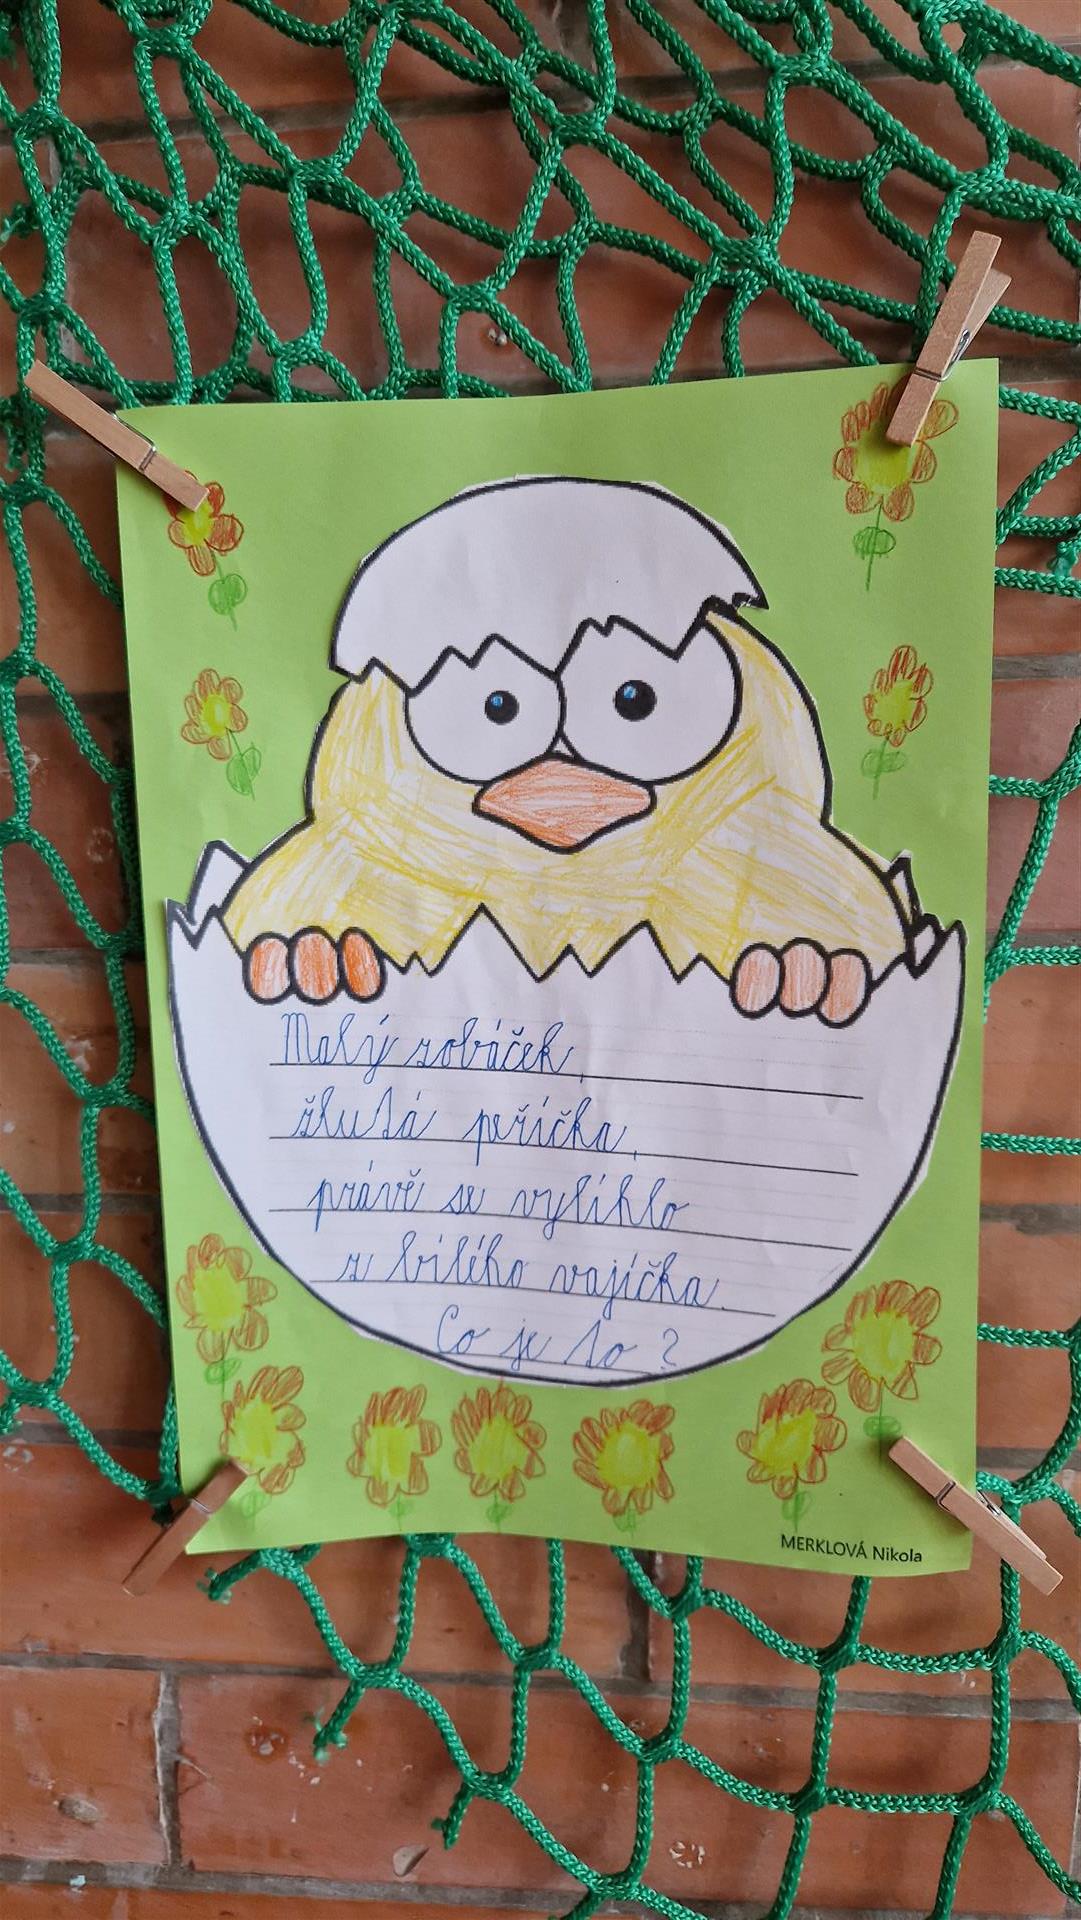 Malý zobáček,
žlutá peříčka,
právě se vylíhlo
z bílého vajíčka.
Co je to?
MERKLOVÁ Nikola